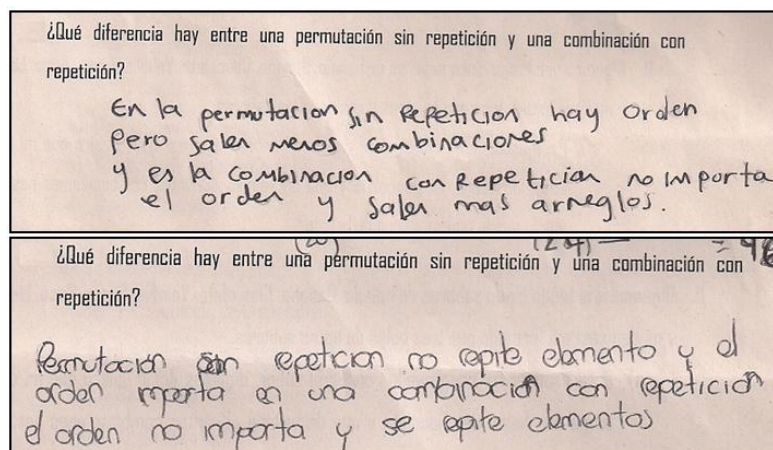 ¿Qué diferencia hay entre una permutación sin repetición y una combinación con
repetición?
En la permutacion sin Repeticion hay orden
pero salen menos combinaciones
y es la combinacion con Repeticion no importa
el orden y salen mas arreglos.
¿Qué diferencia hay entre una permutación sin repetición y una combinación con
repetición?
Permutación sin repeticion no repite elemento y el
orden importa en una combinación con repetición
el orden no importa y se repite elementos